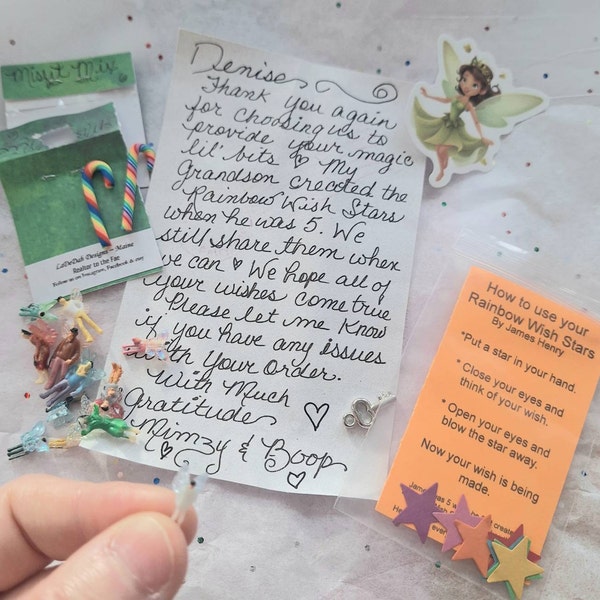 Misfit Mix
LaDeDah Designs ~ Maine
Realtor to the Fae
Follow us on Instagram, Facebook & etsy
Denise
Thank you again
for choosing us to
provide your magic
lil' bits ♡ My
Grandson created the
Rainbow Wish Stars
when he was 5. We
still share them when
we can ♡ We hope all of
your wishes come true
Please let me know
if you have any issues
with your order.
With Much
Gratitude
Mimzy & Boop
How to use your
Rainbow Wish Stars
By James Henry
*Put a star in your hand.
* Close your eyes and
think of your wish.
*Open your eyes and
blow the star away.
Now your wish is being
made.